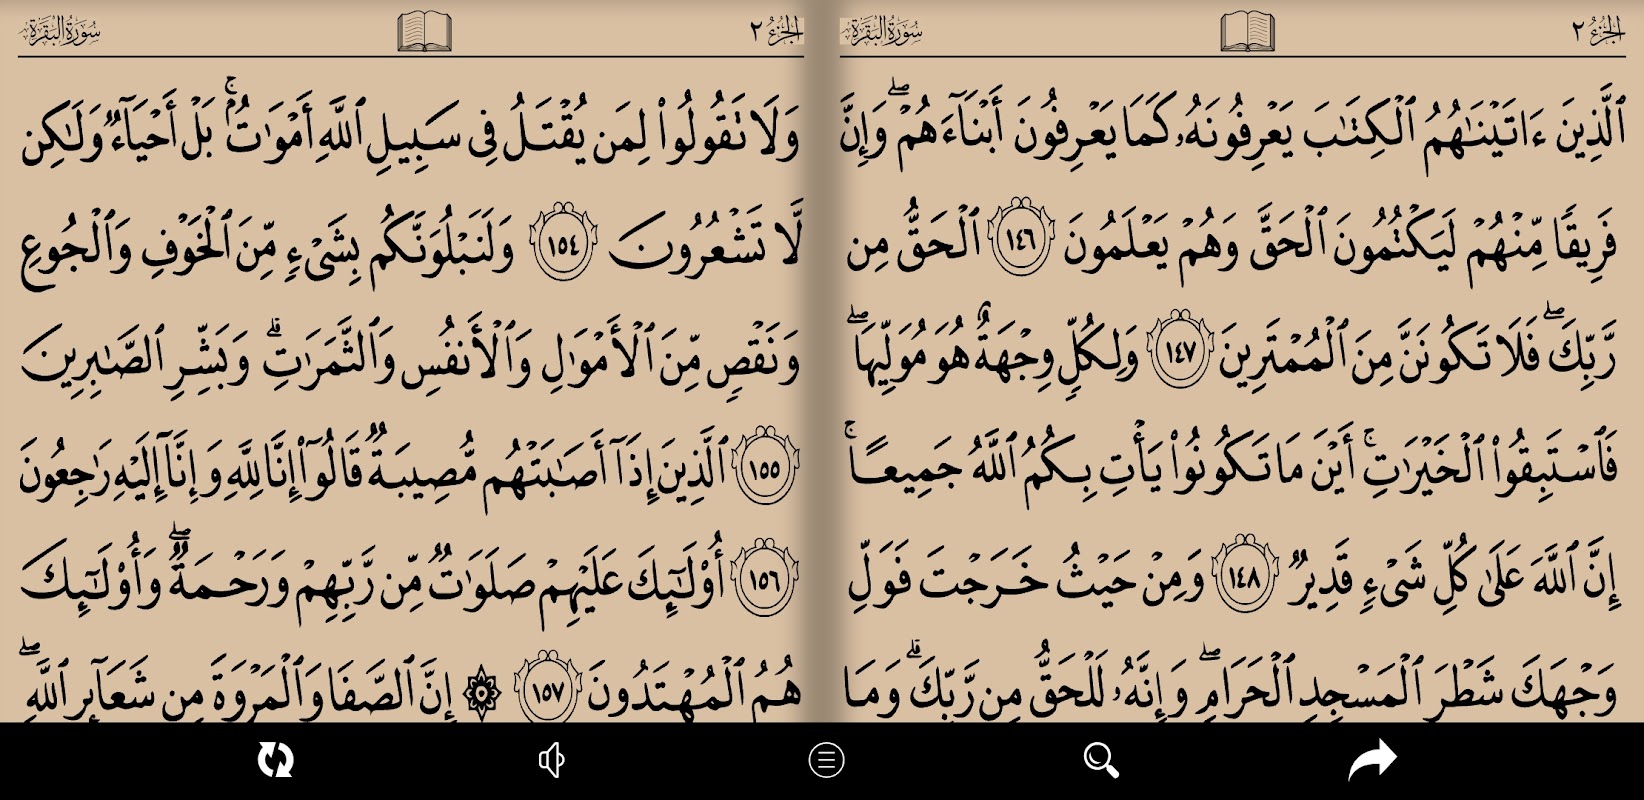 الجزء ٢
سورة البقرة
ٱلَّذِينَ ءَاتَيْنَـٰهُمُ ٱلْكِتَـٰبَ يَعْرِفُونَهُۥ كَمَا يَعْرِفُونَ أَبْنَآءَهُمْ ۖ وَإِنَّ
فَرِيقًا مِّنْهُمْ لَيَكْتُمُونَ ٱلْحَقَّ وَهُمْ يَعْلَمُونَ ١٤٦ ٱلْحَقُّ مِن
رَّبِّكَ ۖ فَلَا تَكُونَنَّ مِنَ ٱلْمُمْتَرِينَ ١٤٧ وَلِكُلٍّ وِجْهَةٌ هُوَ مُوَلِّيهَا ۖ
فَٱسْتَبِقُوا۟ ٱلْخَيْرَٰتِ ۚ أَيْنَ مَا تَكُونُوا۟ يَأْتِ بِكُمُ ٱللَّهُ جَمِيعًا ۚ
إِنَّ ٱللَّهَ عَلَىٰ كُلِّ شَىْءٍ قَدِيرٌ ١٤٨ وَمِنْ حَيْثُ خَرَجْتَ فَوَلِّ
وَجْهَكَ شَطْرَ ٱلْمَسْجِدِ ٱلْحَرَامِ ۖ وَإِنَّهُۥ لَلْحَقُّ مِن رَّبِّكَ ۗ وَمَا
الجزء ٢
سورة البقرة
وَلَا تَقُولُوا۟ لِمَن يُقْتَلُ فِى سَبِيلِ ٱللَّهِ أَمْوَٰتٌۢ ۚ بَلْ أَحْيَآءٌ وَلَـٰكِن
لَّا تَشْعُرُونَ ١٥٤ وَلَنَبْلُوَنَّكُم بِشَىْءٍ مِّنَ ٱلْخَوْفِ وَٱلْجُوعِ
وَنَقْصٍ مِّنَ ٱلْأَمْوَٰلِ وَٱلْأَنفُسِ وَٱلثَّمَرَٰتِ ۗ وَبَشِّرِ ٱلصَّـٰبِرِينَ
١٥٥ ٱلَّذِينَ إِذَآ أَصَـٰبَتْهُم مُّصِيبَةٌ قَالُوٓا۟ إِنَّا لِلَّهِ وَإِنَّآ إِلَيْهِ رَٰجِعُونَ
١٥٦ أُو۟لَـٰٓئِكَ عَلَيْهِمْ صَلَوَٰتٌ مِّن رَّبِّهِمْ وَرَحْمَةٌ ۖ وَأُو۟لَـٰٓئِكَ
هُمُ ٱلْمُهْتَدُونَ ١٥٧ ۞ إِنَّ ٱلصَّفَا وَٱلْمَرْوَةَ مِن شَعَآئِرِ ٱللَّهِ ۖ